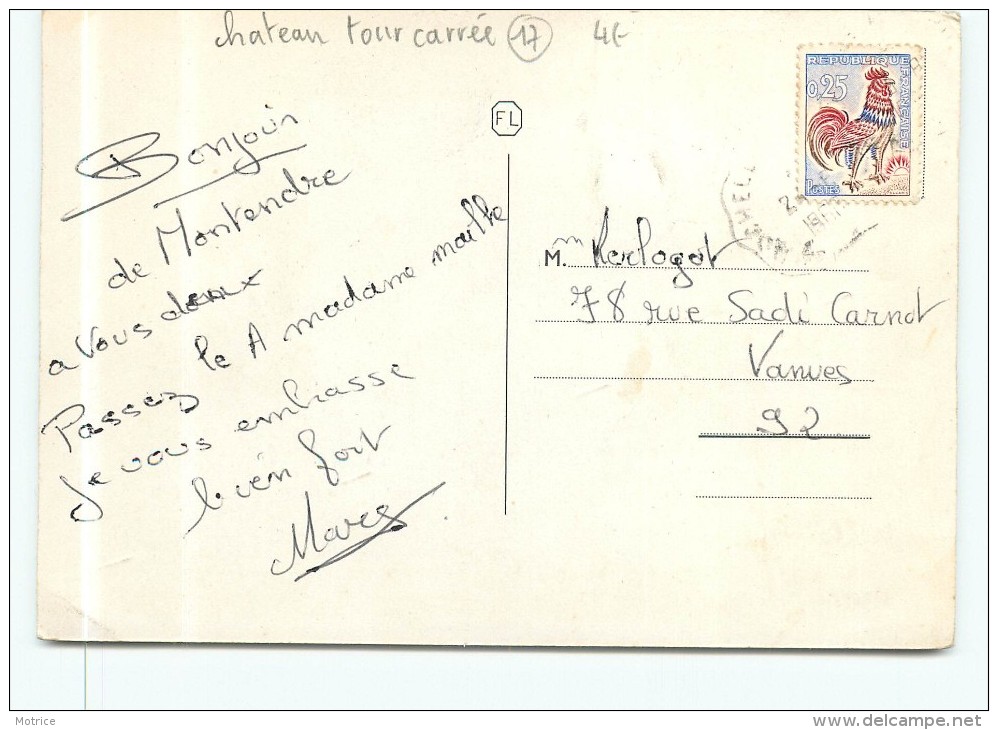 chateau tour carrée 17 4€
REPUBLIQUE FRANÇAISE
0,25
POSTES
FL
Bonjour
de Montendre
a vous deux
Passez le A madame maille
je vous embrasse
bien fort
M.me Kerlogot
78 rue Sadi Carnot
Vanves
92
Motrice
delcampe.net